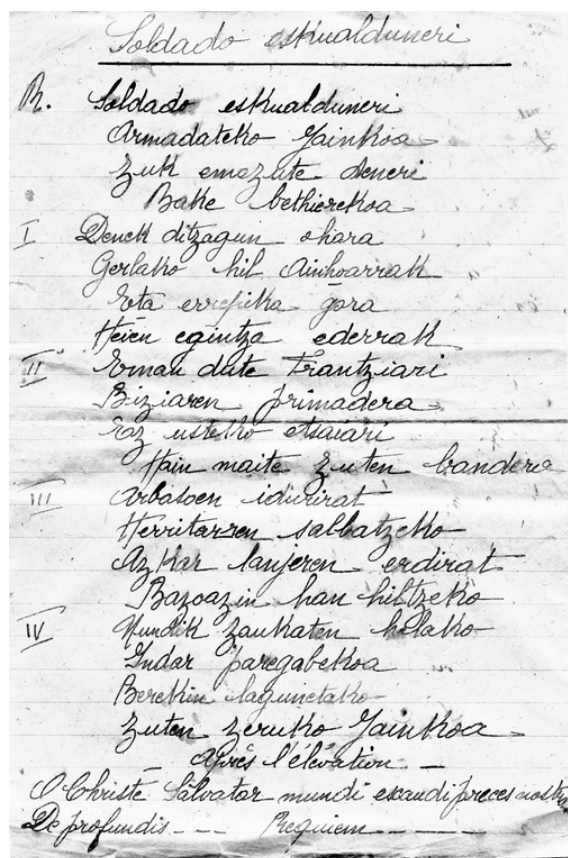 Soldado eskualduneri
R. Soldado eskualduneri
Armadateko Jainkoa
Zuk emozute deneri
Bake bethierekoa
I Denek ditzagun ohara
Gerlako hil Ainhoarrak
Eta errepika gora
Heien egintza ederrak
II Eman dute Frantziari
Biziaren primadera
Ez uzteko etsaiari
Hain maite zuten bandera
III Arbasoen idurirat
Herritarren salbatzeko
Azkar lanjeren erdirat
Bazoazin han hiltzeko
IV Nundik zaukaten holako
Indar paregabekoa
Berekin lagunetako
Zuten zeruko Jainkoa
Après l'élévation
O Christe Salvator mundi exaudi preces nostras
De profundis --- Requiem -----